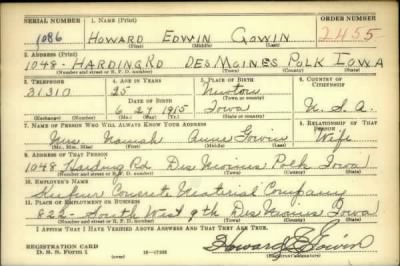 SERIAL NUMBER 1. NAME (Print) ORDER NUMBER
1086 HOWARD EDWIN GOWIN 2455
(First) (Middle) (Last)
2. ADDRESS (Print)
1048 - HARDING RD DES MOINES POLK IOWA
(Number and street or R. F. D. number) (Town) (County) (State)
3. TELEPHONE 4. AGE IN YEARS 5. PLACE OF BIRTH 6. COUNTRY OF CITIZENSHIP
31310 25 Newton
DATE OF BIRTH (Town or county)
6 27 1915 Iowa U. S. A.
(Exchange) (Number) (Mo.) (Day) (Yr.) (State or country)
7. NAME OF PERSON WHO WILL ALWAYS KNOW YOUR ADDRESS 8. RELATIONSHIP OF THAT PERSON
Mrs Anna Gowin Wife
(Mr., Mrs., Miss) (First) (Middle) (Last)
9. ADDRESS OF THAT PERSON
1048 Harding Rd Des Moines Polk Iowa
(Number and street or R. F. D. number) (Town) (County) (State)
10. EMPLOYER'S NAME
Concrete Material Company
11. PLACE OF EMPLOYMENT OR BUSINESS
822 - South West 9th Des Moines Iowa
(Number and street or R. F. D. number) (Town) (County) (State)
I AFFIRM THAT I HAVE VERIFIED ABOVE ANSWERS AND THAT THEY ARE TRUE.
REGISTRATION CARD
D. S. S. Form 1 (over) Howard E Gowin
(Registrant's signature)